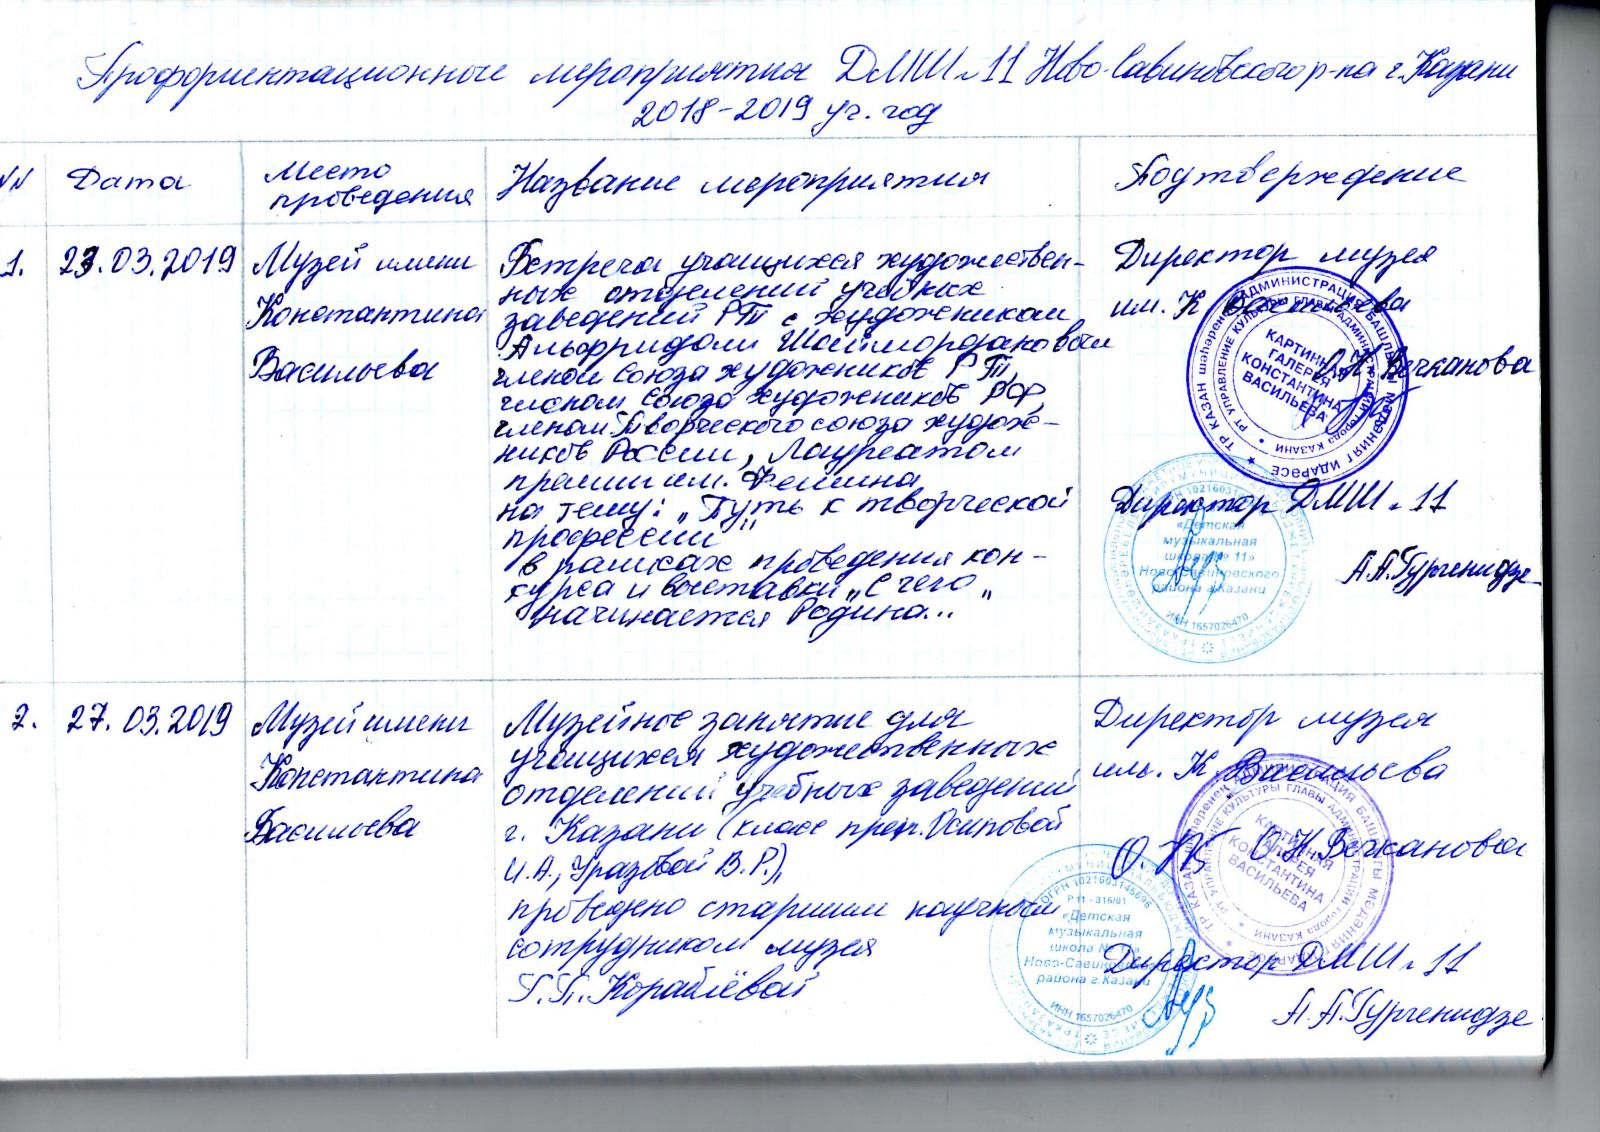 Профориентационные мероприятия ДМШ №11 Ново-Савиновского р-на г. Казани
2018-2019 уч. год
NN Дата Место проведения Название мероприятия Подтверждение
1. 23.03.2019
Музей имени
Константина
Васильева
Встреча учащихся художествен-
ных отделений учебных
заведений РТ с художником
Альфридом Шаймордановым
членом Союза художников РТ,
членом Союза художников РФ,
членом Творческого союза худож-
ников России, Лауреатом
премии им. Фешина
на тему: „Путь к творческой
профессии"
в рамках проведения кон-
курса и выставки „С чего
начинается Родина...
Директор музея
им. К Васильева
О.Н. Вечканова
КАРТИННАЯ
ГАЛЕРЕЯ
КОНСТАНТИНА
ВАСИЛЬЕВА
Директор ДМШ № 11
А.А. Гургенидзе
«Детская
музыкальная
школа № 11»
Ново-Савиновского
района г.Казани
ИНН 1657026470
2. 27.03.2019
Музей имени
Константина
Васильева
Музейное занятие для
учащихся художественных
отделений учебных заведений
г. Казани (класс преп. Осиповой
И.А., Уразовой В.Р.),
проведено старшим научным
сотрудником музея
Г.П. Кораблёвой
Директор музея
им. К. Васильева
О.Н. Вечканова
КАРТИННАЯ
ГАЛЕРЕЯ
КОНСТАНТИНА
ВАСИЛЬЕВА
Директор ДМШ № 11
А.А. Гургенидзе
ОГРН 1021603145696
Р11 - 816/01
«Детская
музыкальная
школа № 11»
Ново-Савиновского
района г.Казани
ИНН 1657026470